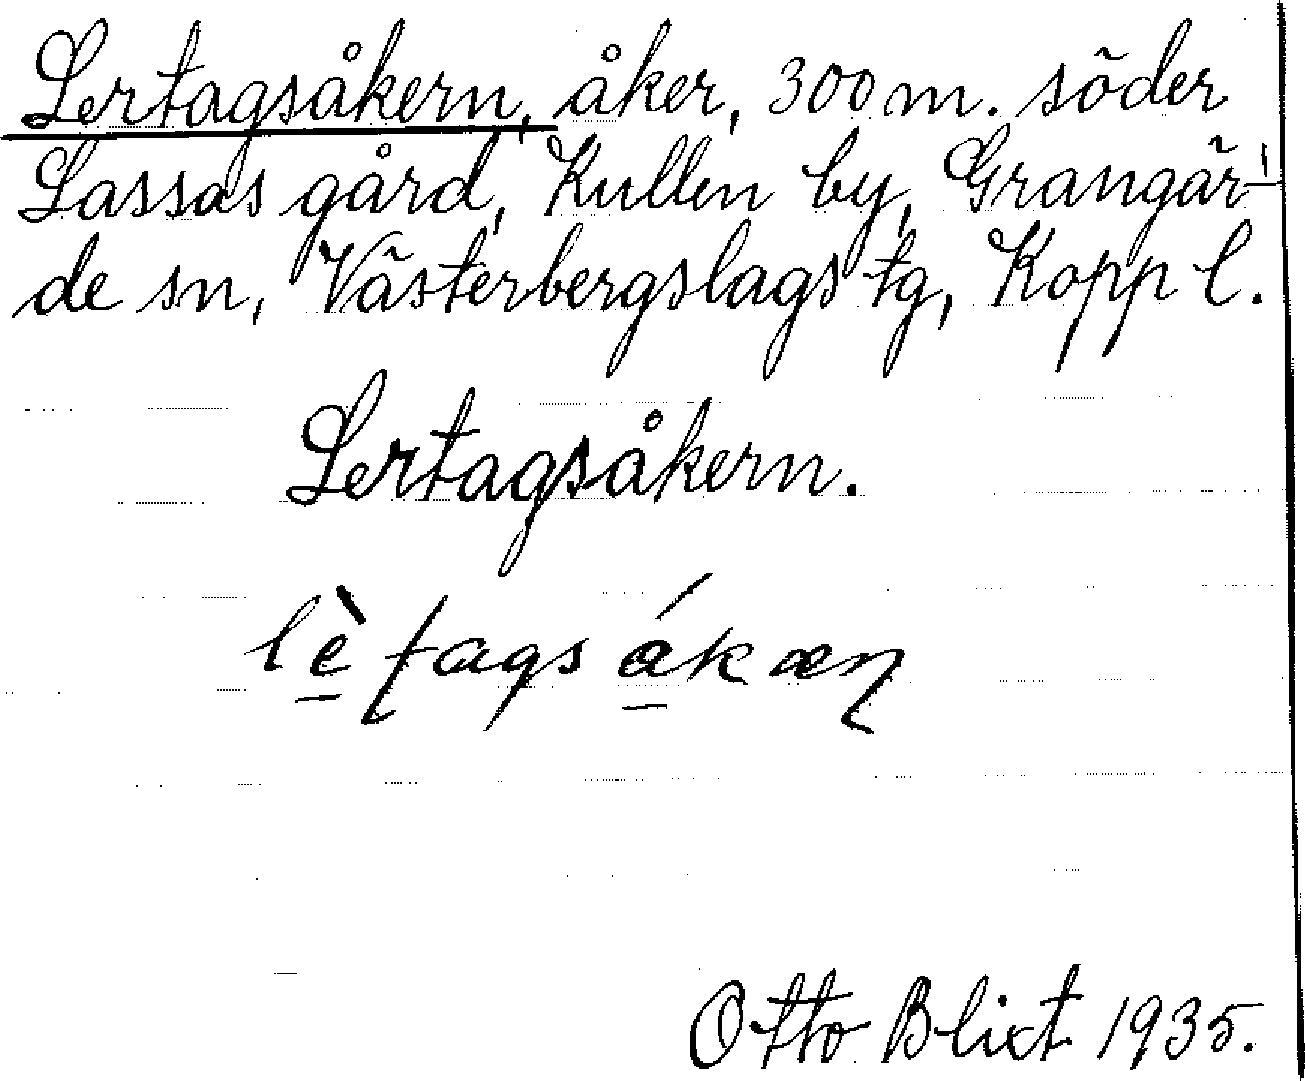 Lertagsåkern, åker, 300 m. söder
Lassas gård, Kullen by, Grangär-
de sn, Västerbergslags tg, Kopp l.
Lertagsåkern.
lè̱ʈagsá̱kæɳ
Otto Blixt 1935.